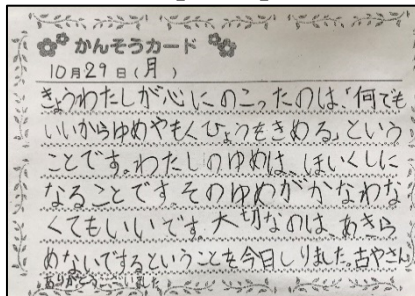 かんそうカード
10月29日(月)
きょうわたしが心にのこったのは、「何でも
いいからゆめやもくひょうをきめる」という
ことです。わたしのゆめは、ほいくしに
なることです。そのゆめがかなわな
くてもいいです。大切なのは、あきら
めないですするということを今日しりました。古やさん
ありがとうございました